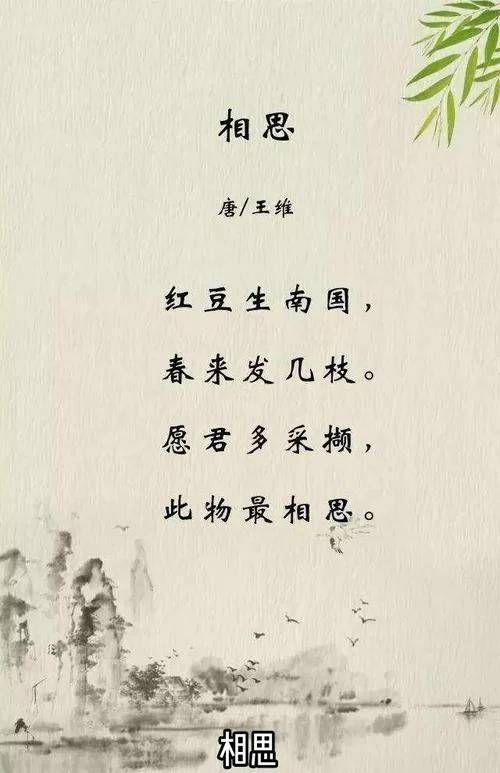 相思
唐/王维
红豆生南国，
春来发几枝。
愿君多采撷，
此物最相思。
相思